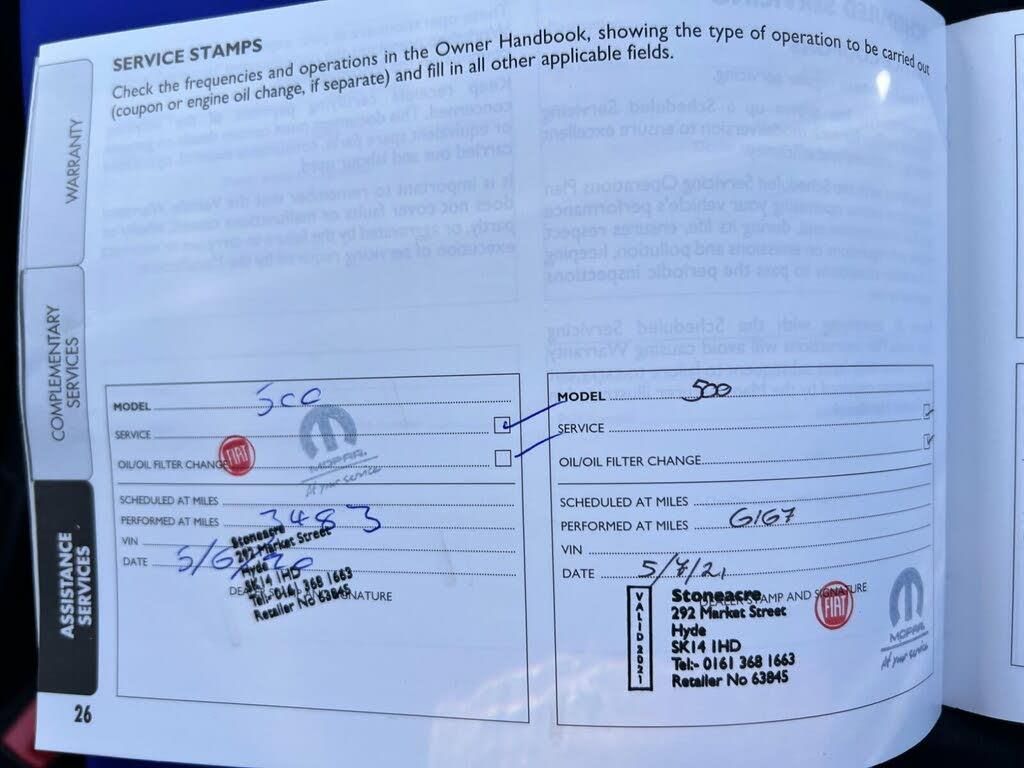 SERVICE STAMPS
Check the frequencies and operations in the Owner Handbook, showing the type of operation to be carried out
(coupon or engine oil change, if separate) and fill in all other applicable fields.
WARRANTY
COMPLEMENTARY
SERVICES
ASSISTANCE
SERVICES
MODEL 500
SERVICE
OIL/OIL FILTER CHANGE
FIAT
MOPAR
At your service
SCHEDULED AT MILES
PERFORMED AT MILES 3483
VIN
DATE 5/6/20
Stoneacre
292 Market Street
Hyde
SK14 1HD
Tel:- 0161 368 1663
Retailer No 63845
DEALER STAMP AND SIGNATURE
MODEL 500
SERVICE
OIL/OIL FILTER CHANGE
SCHEDULED AT MILES
PERFORMED AT MILES 6167
VIN
DATE 5/7/21
DEALER STAMP AND SIGNATURE
VALID 2021
Stoneacre
292 Market Street
Hyde
SK14 1HD
Tel:- 0161 368 1663
Retailer No 63845
FIAT
MOPAR
At your service
26